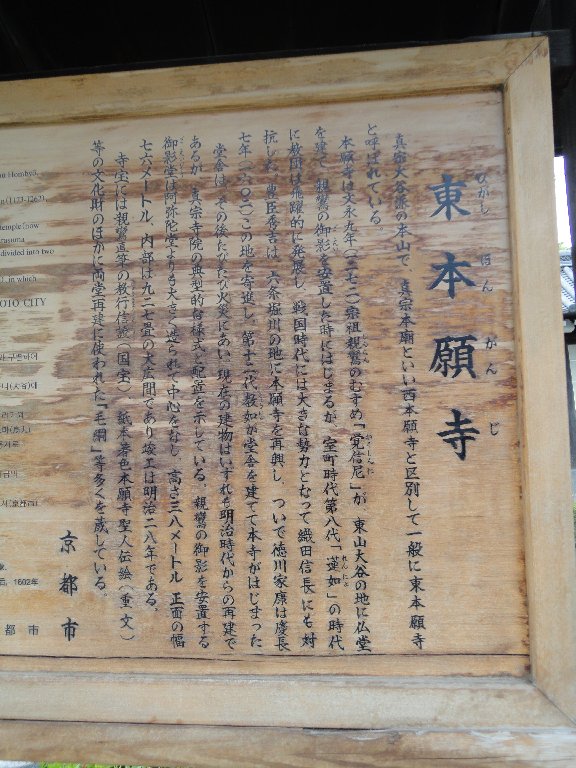 東本願寺
ひがし ほん がん じ
真宗大谷派の本山で、真宗本廟といい西本願寺と区別して一般に東本願寺
と呼ばれている。
本願寺は文永九年(一二七二)宗祖親鸞のむすめ「覚信尼」が、東山大谷の地に仏堂
を建て、親鸞の御影を安置した時にはじまるが、室町時代第八代「蓮如」の時代
に教団は飛躍的に発展し、戦国時代には大きな勢力となって織田信長にも対
抗した。豊臣秀吉は、六条堀川の地に本願寺を再興し、ついで徳川家康は慶長
七年(一六〇二)この地を寄進し、第十二代教如が堂舎を建てて本寺がはじまった
堂舎は、その後たびたび火災にあい、現在の建物はいずれも明治時代からの再建で
あるが、真宗寺院の典型的な様式と配置を示している。親鸞の御影を安置する
御影堂は阿弥陀堂よりも大きく造られて中心をなし、高さ三八メートル 正面の幅
七六メートル、内部は九二七畳の大広間であり竣工は明治二八年である。
寺宝には親鸞直筆の教行信證(国宝)、紙本着色本願寺聖人伝絵(重文)
等の文化財のほかに両堂再建に使われた『毛綱』等多くを蔵している。
京都市
(1173-1262),
temple(now
divided into two
in which
OTO CITY
1602年
都 市